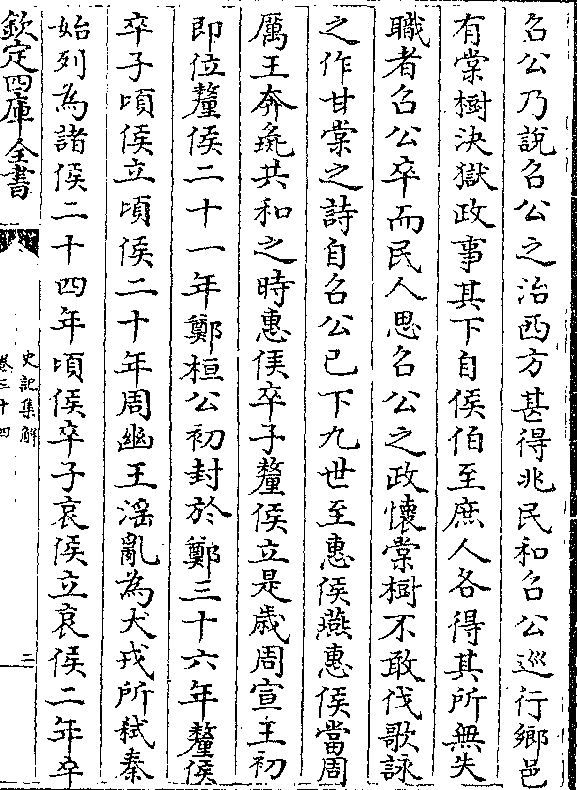 召公乃說召公之治西方甚得兆民和召公巡行鄉邑
有棠樹決獄政事其下自侯伯至庶人各得其所無失
職者召公卒而民人思召公之政懷棠樹不敢伐歌詠
之作甘棠之詩自召公已下九世至惠侯燕惠侯當周
厲王奔彘共和之時惠侯卒子釐侯立是歲周宣王初
即位釐侯二十一年鄭桓公初封於鄭三十六年釐侯
卒子頃侯立頃侯二十年周幽王淫亂為犬戎所弒秦
始列為諸侯二十四年頃侯卒子哀侯立哀侯二年卒
欽定四庫全書
史記集解
卷三十四
三